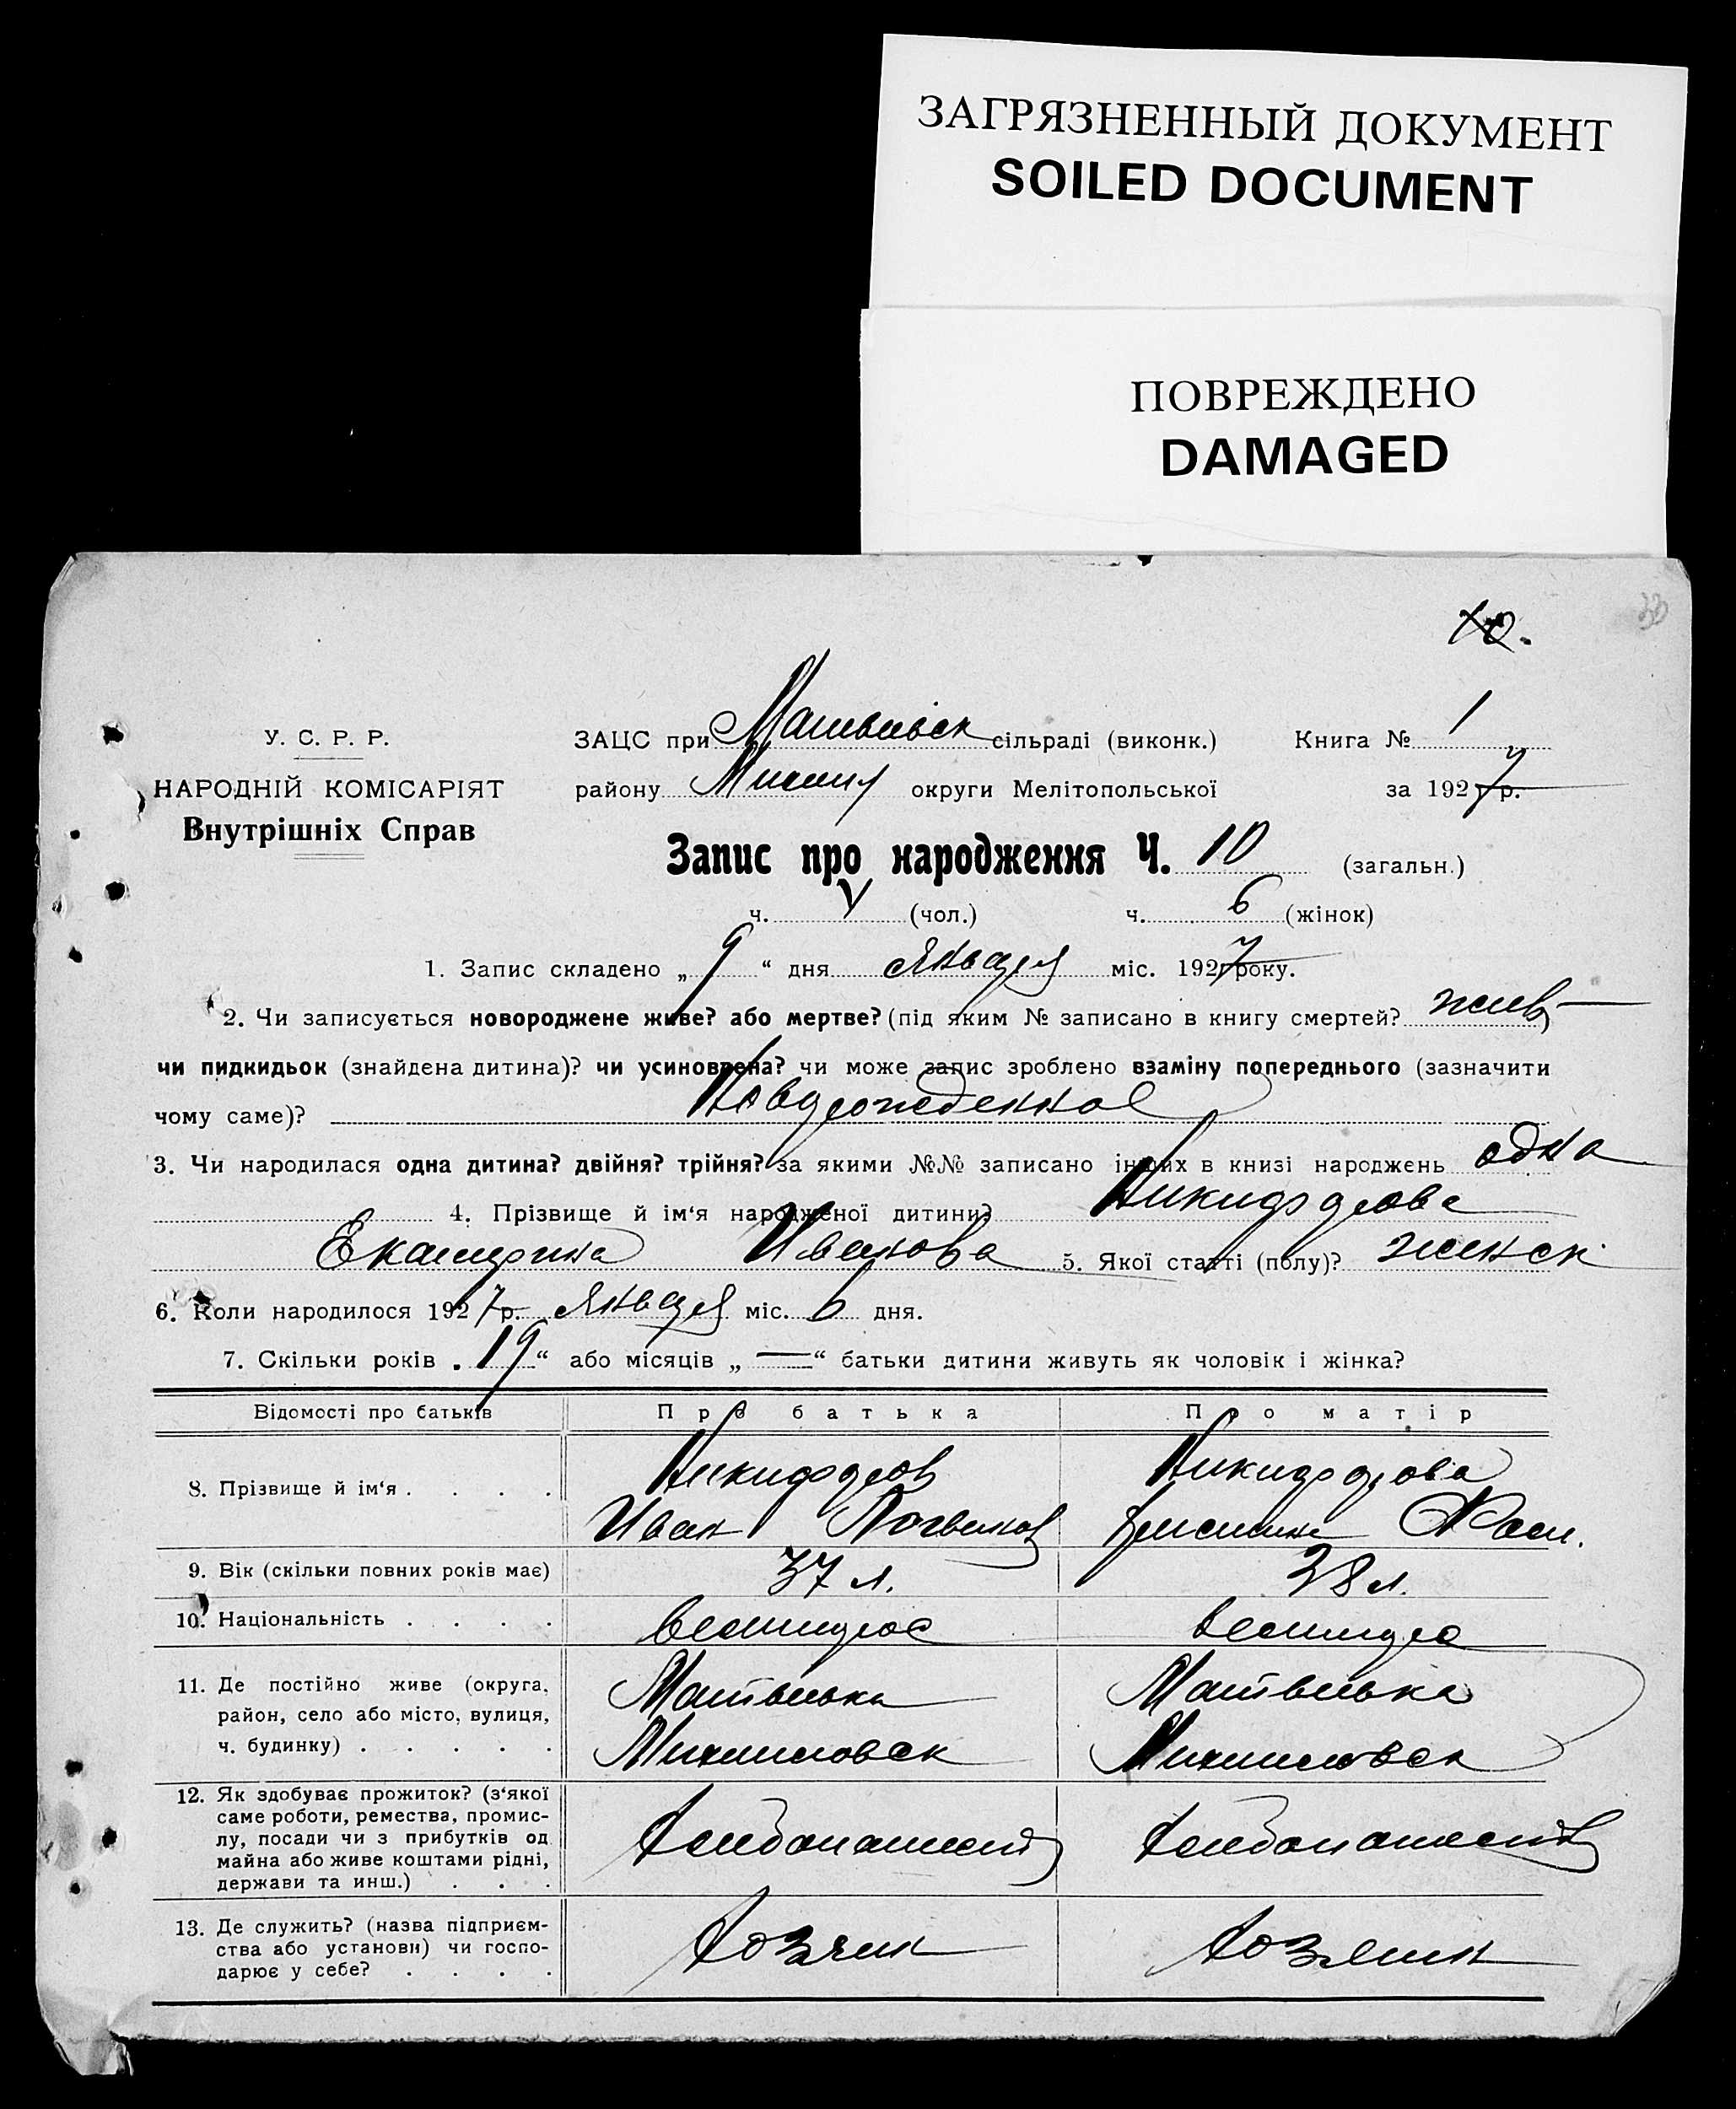 ЗАГРЯЗНЕННЫЙ ДОКУМЕНТ
SOILED DOCUMENT
ПОВРЕЖДЕНО
DAMAGED
30
10.
У. С. Р. Р.
НАРОДНІЙ КОМІСАРІЯТ
Внутрішніх Справ
ЗАЦС при Матвеевск сільраді (виконк.) Книга № 1
району округи Мелітопольської за 1927 р.
Запис про народження Ч. 10 (загальн.)
ч. V (чол.) ч. 6 (жінок)
1. Запис складено „ 9 “ дня Января міс. 1927 року.
2. Чи записується новороджене живе? або мертве? (під яким № записано в книгу смертей? жив
чи пидкидьок (знайдена дитина)? чи усиновлена? чи може запис зроблено взаміну попереднього (зазначити
чому саме)? Новорожденное
3. Чи народилася одна дитина? двійня? трійня? за якими №№ записано інших в книзі народжень одна
4. Прізвище й ім‘я народженої дитини? Никифорова
Екатерина Иванова 5. Якої статті (полу)? женск.
6. Коли народилося 1927 р. Января міс. 6 дня.
7. Скільки років „ 19 “ або місяців „ — “ батьки дитини живуть як чоловік і жінка?
Відомості про батьків Про батька Про матір
8. Прізвище й ім‘я . . . . Никифоров Никифорова
Иван Логвинов
9. Вік (скільки повних років має) 37 л. 28 л.
10. Національність . . . .
11. Де постійно живе (округа, Матвеевка Матвеевка
район, село або місто, вулиця,
ч. будинку) . . . . . Михайловск Михайловск
12. Як здобуває прожиток? (з‘якої
саме роботи, ремества, промис-
лу, посади чи з прибутків од Хлебопашеств Хлебопашеств
майна або живе коштами рідні,
держави та инш.) . . .
13. Де служить? (назва підприєм-
ства або установи) чи госпо- Хозяин Хозяин
дарює у себе? . . . .